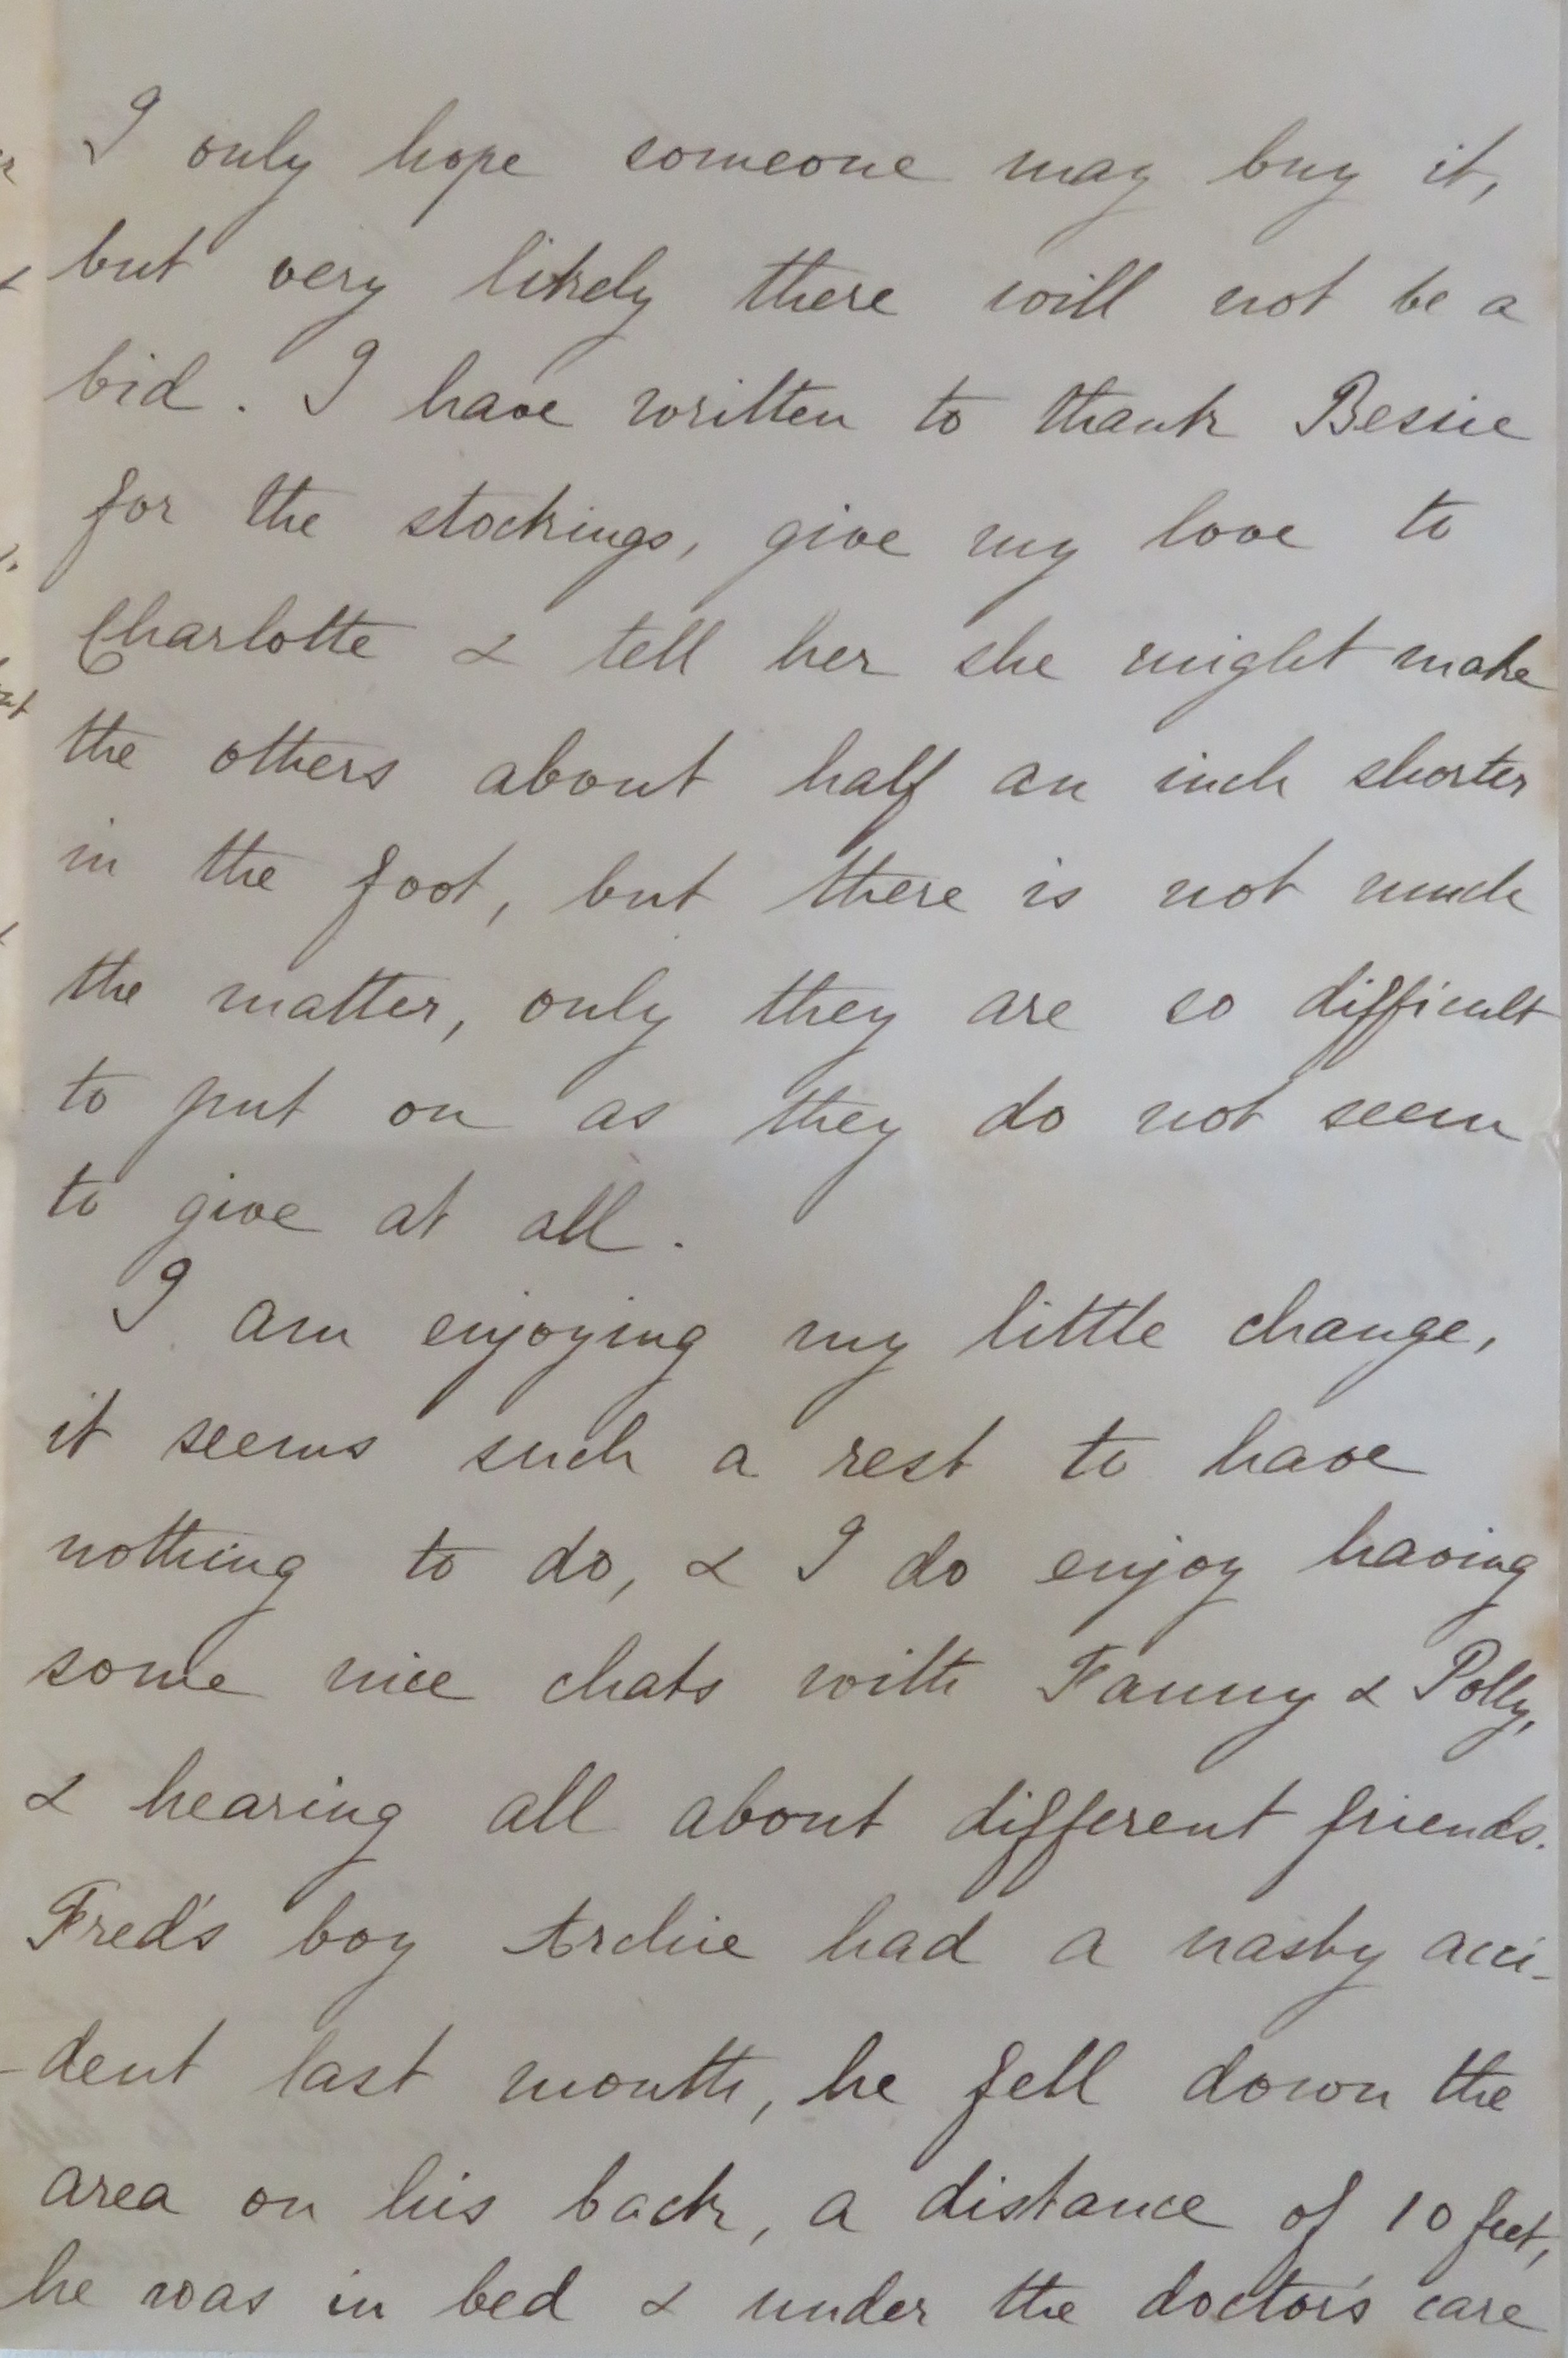 I only hope someone may buy it,
but very likely there will not be a
bid. I have written to thank Bessie
for the stockings, give my love to
Charlotte & tell her she might make
the others about half an inch shorter
in the foot, but there is not much
the matter, only they are so difficult
to put on as they do not seem
to give at all.
I am enjoying my little change,
it seems such a rest to have
nothing to do, & I do enjoy having
some nice chats with Fanny & Polly,
& hearing all about different friends.
Fred's boy Archie had a nasty acci-
-dent last month, he fell down the
area on his back, a distance of 10 feet,
he was in bed & under the doctor's care